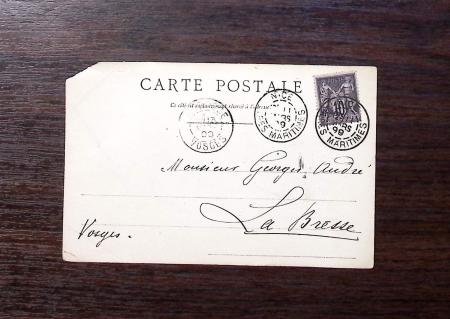 CARTE POSTALE
Ce côté est exclusivement réservé à l'adresse.
NICE
ALPES MARITIMES
99
MARITIMES
VOSGES
10
Monsieur Georges André
La Bresse
Vosges.